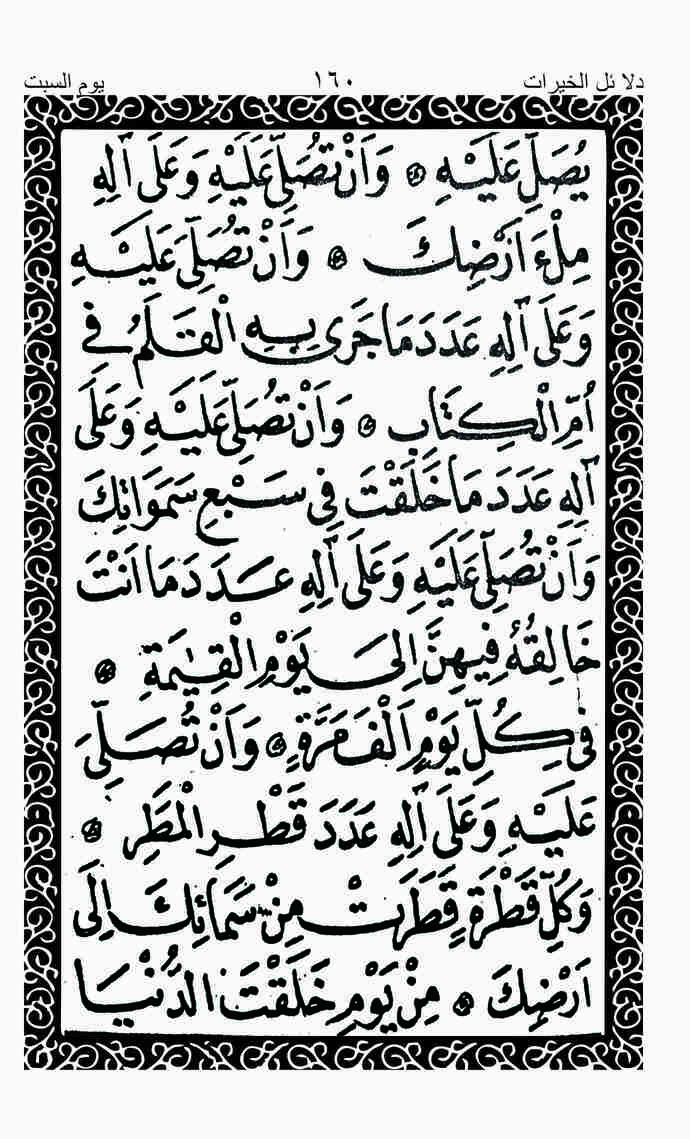 دلائل الخيرات ١٦٠ يوم السبت
يُصَلِّ عَلَيْهِ ۞ وَاَنْ تُصَلِّىَ عَلَيْهِ وَعَلَى اٰلِهِ
مِلْءَ اَرْضِكَ ۞ وَاَنْ تُصَلِّىَ عَلَيْهِ
وَعَلَى اٰلِهِ عَدَدَ مَا جَرٰى بِهِ الْقَلَمُ فِى
اُمِّ الْكِتَابِ ۞ وَاَنْ تُصَلِّىَ عَلَيْهِ وَعَلَى
اٰلِهِ عَدَدَ مَا خَلَقْتَ فِى سَبْعِ سَمَوَاتِكَ
وَاَنْ تُصَلِّىَ عَلَيْهِ وَعَلَى اٰلِهِ عَدَدَ مَا اَنْتَ
خَالِقُهُ فِيهِنَّ اِلَى يَوْمِ الْقِيٰمَةِ ۞
فِى كُلِّ يَوْمٍ اَلْفَ مَرَّةٍ ۞ وَاَنْ تُصَلِّىَ
عَلَيْهِ وَعَلَى اٰلِهِ عَدَدَ قَطْرِ الْمَطَرِ ۞
وَكُلِّ قَطْرَةٍ قَطَرَتْ مِنْ سَمَائِكَ اِلَى
اَرْضِكَ ۞ مِنْ يَوْمِ خَلَقْتَ الدُّنْيَا